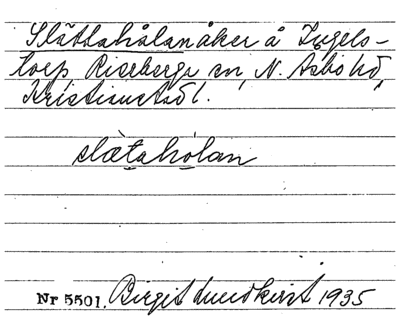 Slättahålan åker å Ingels-
torp, Riseberga sn, N. Åsbo hd,
Kristianstads l.
slätahólan
Nr 5501. Birgit Lundkvist 1935